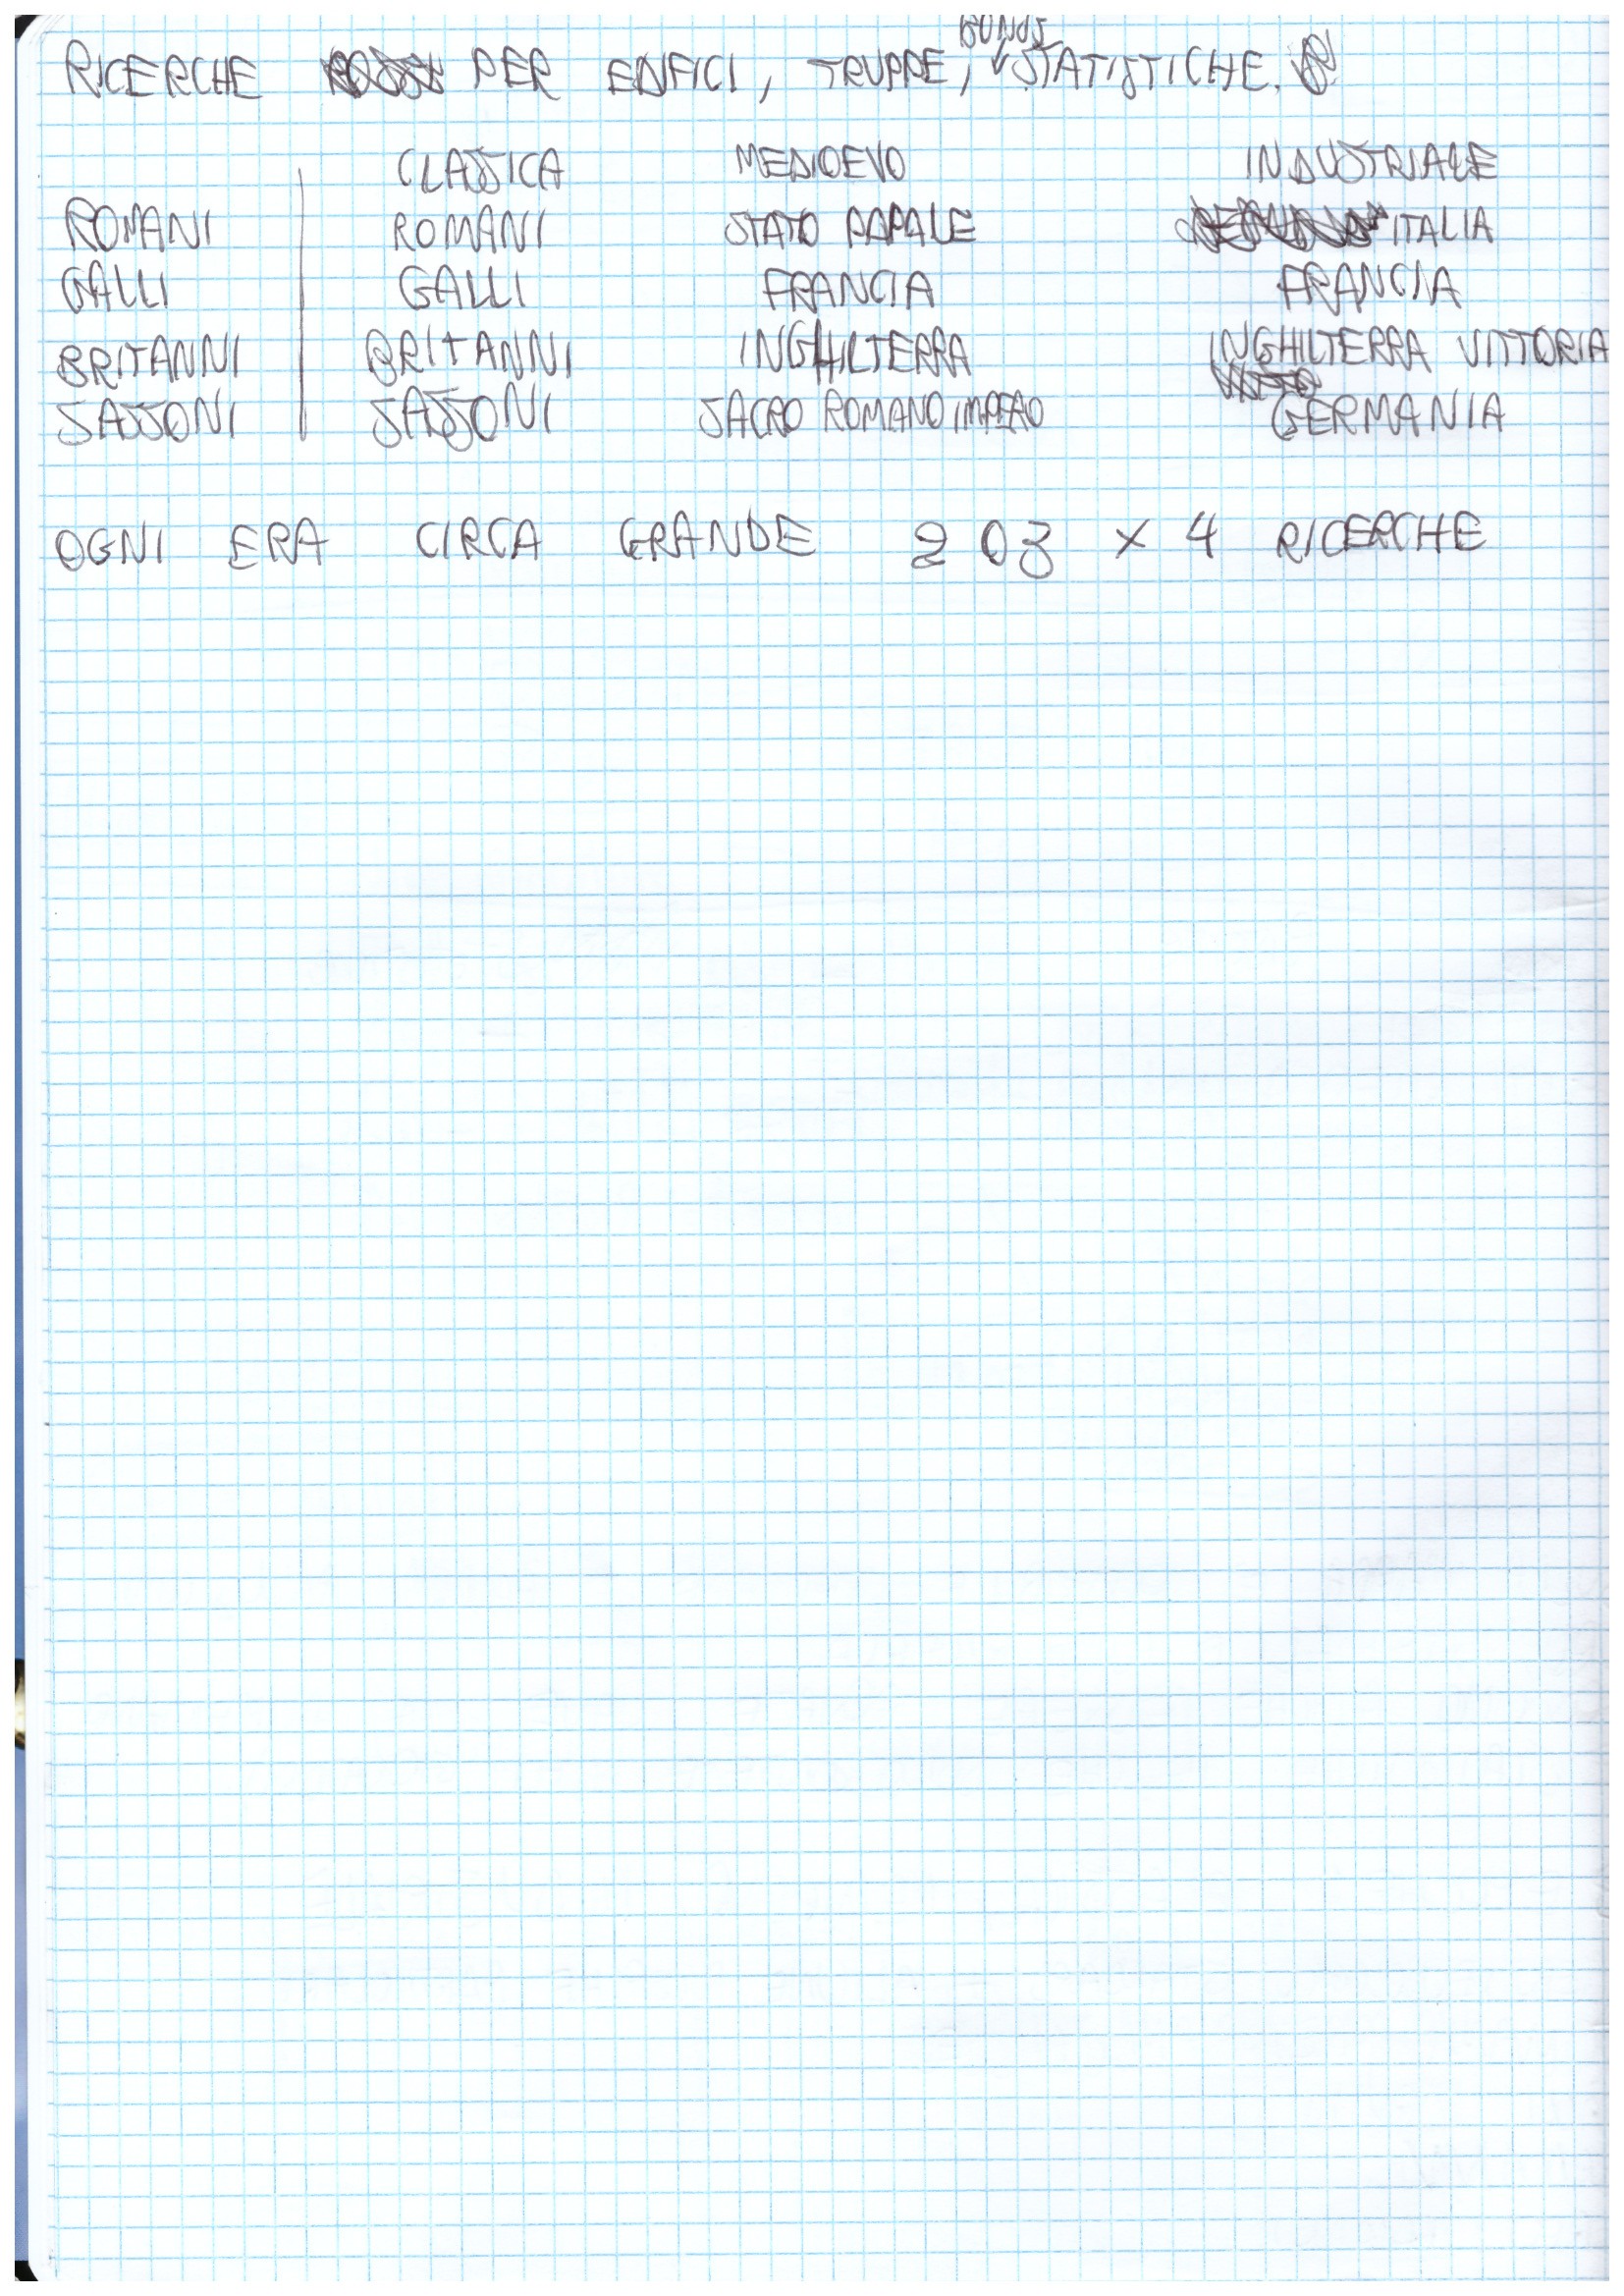 RICERCHE PER EDIFICI, TRUPPE, BONUS STATISTICHE.
CLASSICA MEDIOEVO INDUSTRIALE
ROMANI ROMANI STATO PAPALE ITALIA
GALLI GALLI FRANCIA FRANCIA
BRITANNI BRITANNI INGHILTERRA INGHILTERRA VITTORIA
SASSONI SASSONI SACRO ROMANO IMPERO GERMANIA
OGNI ERA CIRCA GRANDE 2 O 3 × 4 RICERCHE